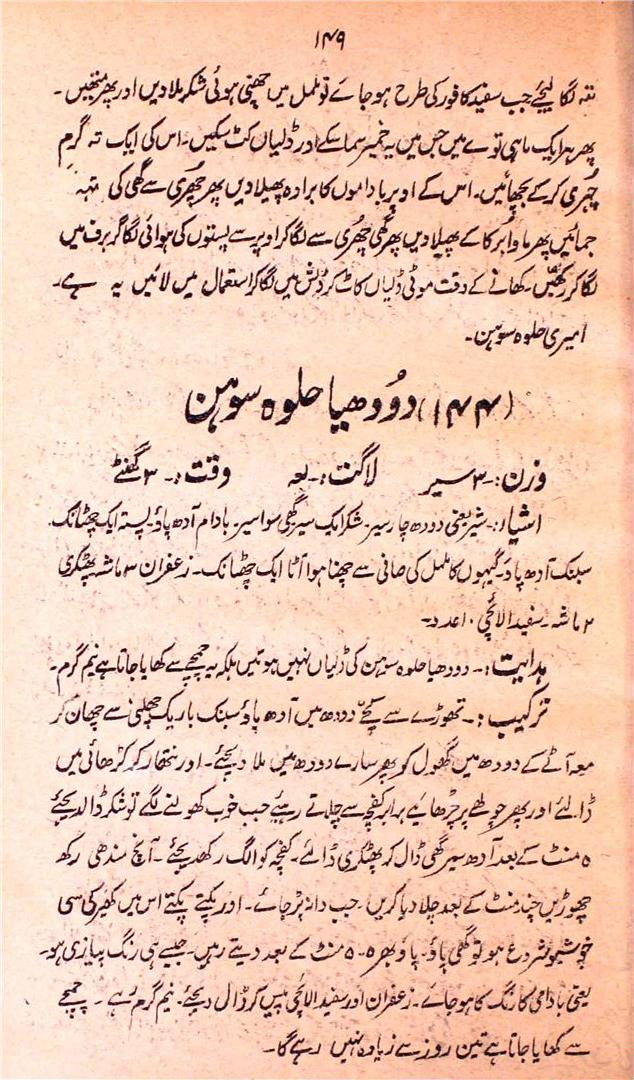 ۱۴۹
تہ لگا لیجئے جب سفید کافور کی طرح ہو جائے تو ململ میں چھنی ہوئی شکر ملا دیں اور پھر متھیں۔
پھر ہر ایک ماہی توے میں جس میں یہ خمیر سما سکے اور ڈلیاں کٹ سکیں۔ اس کی ایک تہ گرم
چہری کر کے بچھائیں۔ اس کے اوپر باداموں کا برادہ پھیلا دیں پھر چھری سے گھی کی تہہ
جمائیں پھر ماوا بُرکا کے پھیلا دیں پھر گھی چھری سے لگا کر اوپر سے پستوں کی ہوائی لگا کر برف میں
لگا کر رکھیں۔ کھانے کے وقت موٹی ڈلیاں کاٹ کر ڈش میں لگا کر استعمال میں لائیں یہ ہے۔
امیری حلوہ سوہن۔
(۱۴۴) دُودھیا حلوہ سوہن
وزن:۔ ۳ سیر لاگت:۔ وقت:۔ ۳ گھنٹے
اشیاء:۔ شیر یعنی دودھ چار سیر۔ شکر ایک سیر گھی سوا سیر۔ بادام آدھ پاؤ۔ پستہ ایک چھٹانک۔
سبنک آدھ پاؤ۔ گیہوں کا ململ کی صافی سے چھنا ہوا آٹا ایک چھٹانک۔ زعفران ۳ ماشہ پھٹکری
۲ ماشہ۔ سفید الائچی ۱۰ عدد۔
ہدایت:۔ دودھیا حلوہ سوہن کی ڈلیاں نہیں ہوتیں بلکہ یہ چمچے سے کھایا جاتا ہے نیم گرم۔
ترکیب:۔ تھوڑے سے کچے دودھ میں آدھ پاؤ سبنک باریک چھلنی سے چھان کر
معہ آٹے کے دودھ میں گھول کو پھر سارے دودھ میں ملا دیجئے۔ اور نتھار کر کڑھائی میں
ڈالئے اور پھر چولھے پر چڑھایئے برابر کفچہ سے چلاتے رہیئے جب خوب کھولنے لگے تو شکر ڈالدیجئے
۵ منٹ کے بعد آدھ سیر گھی ڈال کر پھٹکری ڈالئے۔ کفچہ کو الگ رکھ دیجئے۔ آنچ مندھی رکھ
چھوڑیں چند منٹ کے بعد چلا دیا کریں۔ جب دانہ پڑ جائے۔ اور پکتے پکتے اس میں کھیر کی سی
خوشبو شروع ہو تو گھی پاؤ۔ پاؤ بھر ۵۔ ۵ منٹ کے بعد دیتے رہیں۔ جیسے ہی رنگ پیازی ہو۔
یعنی بادامی کا رنگ کا ہو جائے۔ زعفران اور سفید الائچی پیس کر ڈال دیجئے۔ نیم گرم ہے۔ چمچے
سے کھایا جاتا ہے تین روز سے زیادہ نہیں رہے گا۔